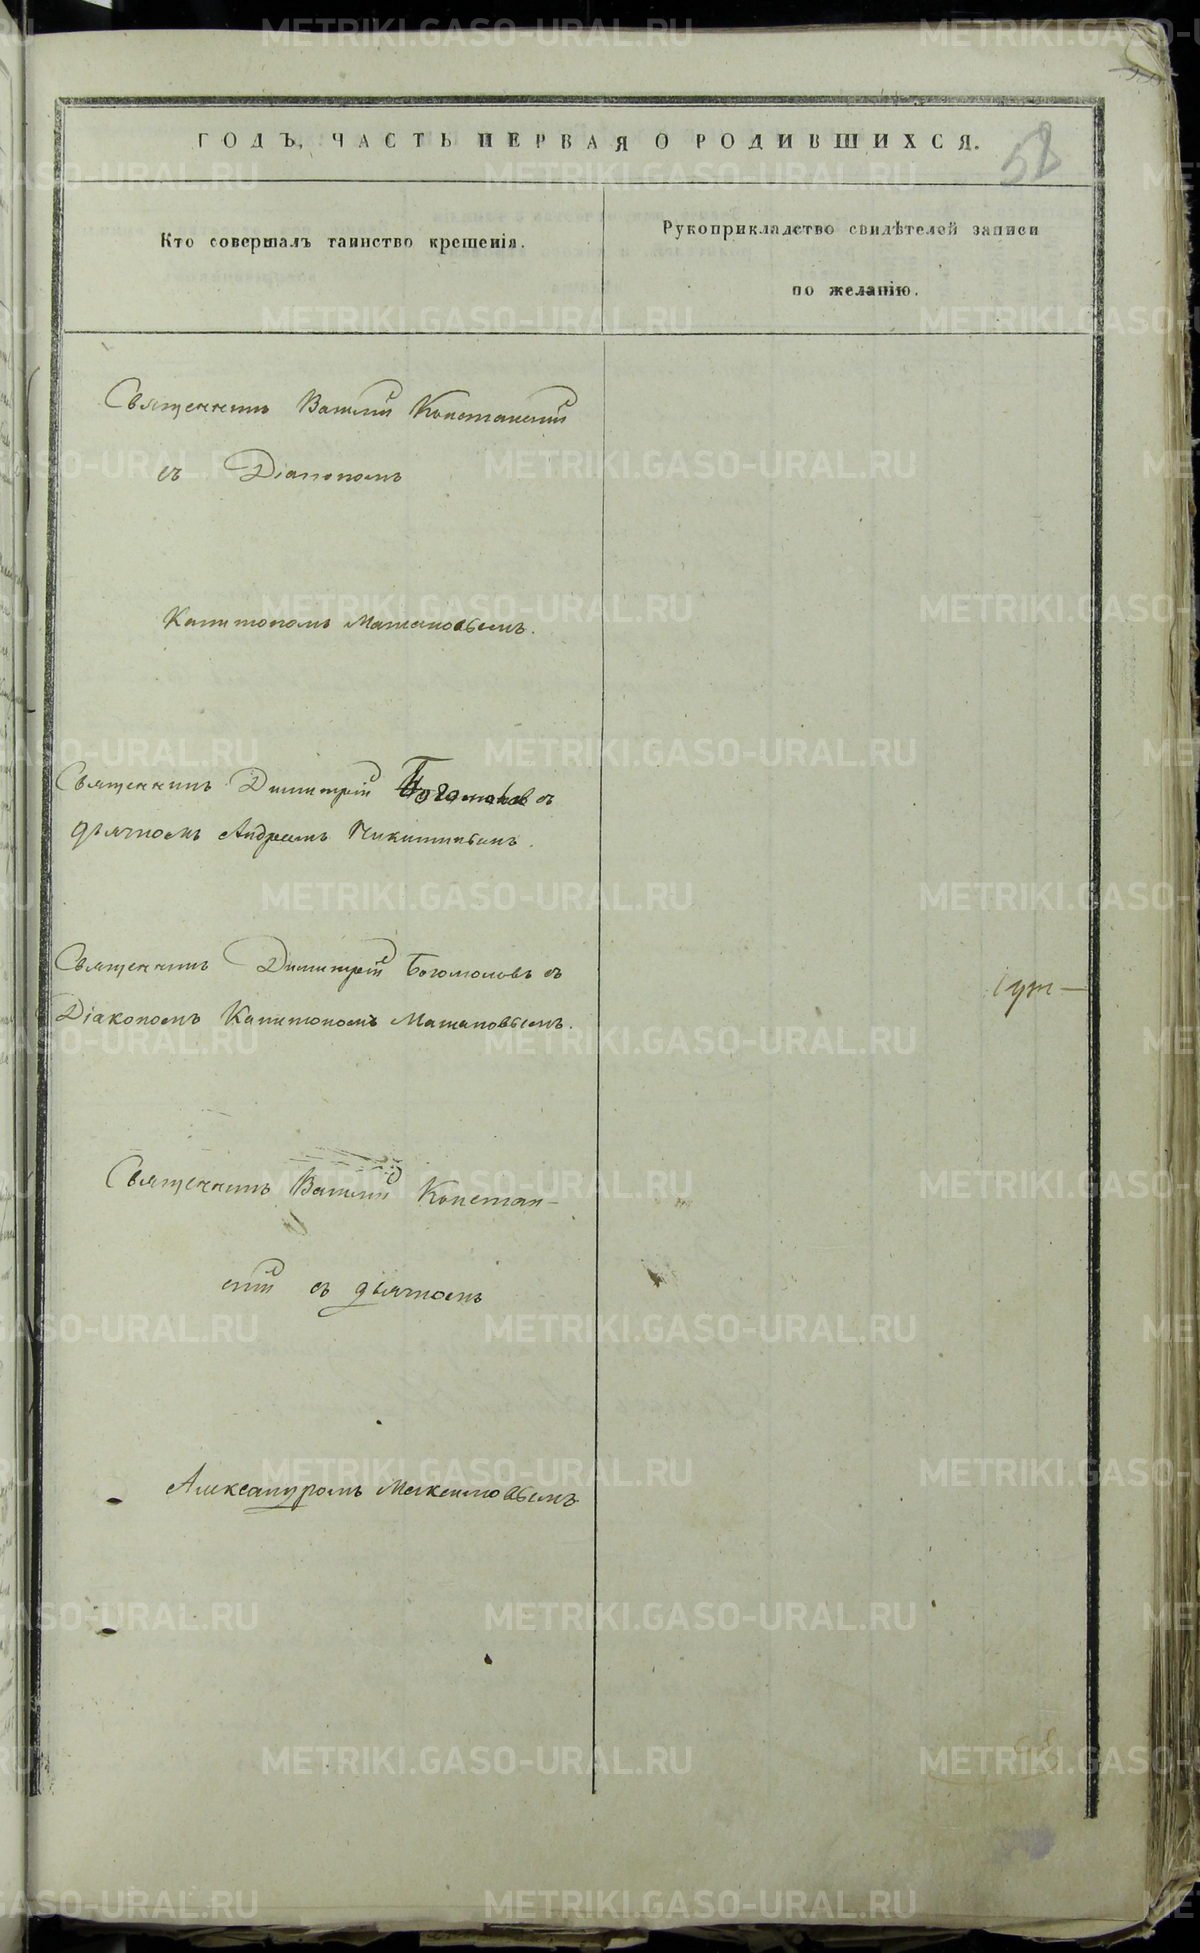 ГОДЪ, ЧАСТЬ ПЕРВАЯ О РОДИВШИХСЯ.
58
Кто совершалъ таинство крещенія.
Рукоприкладство свидѣтелей записи
по желанію.
Священникъ Василій Констанскій
съ Діакономъ
Капитономъ Машановымъ.
Священникъ Димитрій Богомолов съ
дьячкомъ Андреемъ Никитинымъ.
Священникъ Димитрій Богомоловъ съ
Діакономъ Капитономъ Машановымъ.
Священникъ Василій Констан-
скій съ дьячкомъ
Александромъ Максимовымъ
METRIKI.GASO-URAL.RU